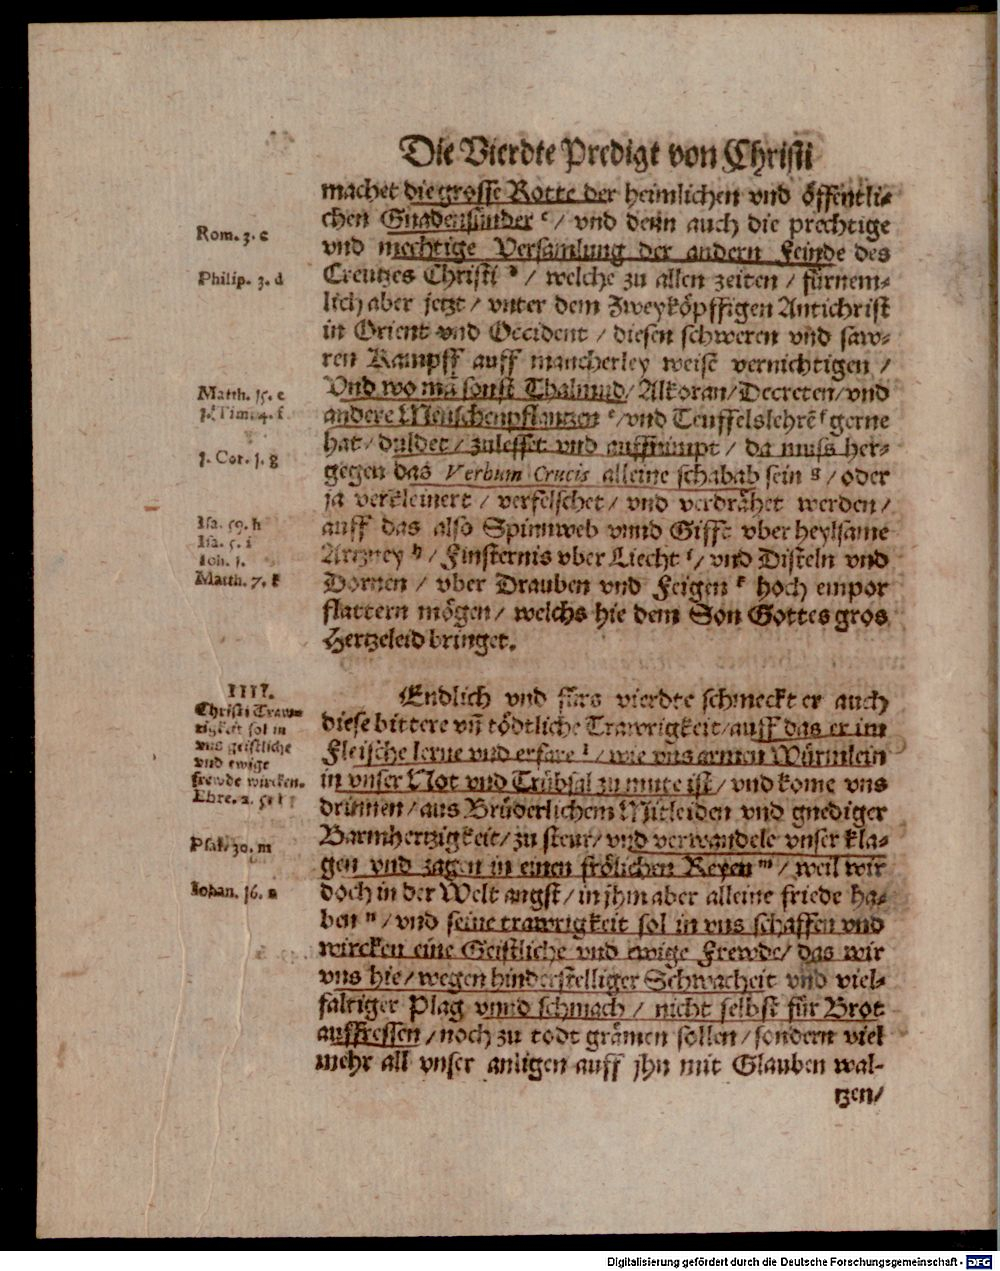 Die Vierdte Predigt von Christi
machet die grosse Rotte der heimlichen vnd öffentli-
chen Gnadensünder c / vnd denn auch die prechtige
Rom. 3. c
vnd mechtige Versamlung der andern Feinde des
Philip. 3. d
Creutzes Christi d / welche zu allen zeiten / fürnem-
lich aber jetzt / vnter dem Zweyköpffigen Antichrist
in Orient vnd Occident / diesen schweren vnd saw-
ren Kampff auff mancherley weise vernichtigen /
Matth. 15. e
Vnd wo mā sonst Thalmud / Alkoran / Decreten / vnd
1. Tim. 4. f
andere Menschenpflantzen e / vnd Teuffelslehrē f gerne
hat / duldet / zulesset vnd auffnimpt / da muss her-
1. Cor. 1. g
gegen das Verbum Crucis alleine schabab sein g / oder
ja verkleinert / verfelschet / vnd verdrähet werden /
Isa. 59. h
auff das also Spinnweb vnnd Gifft vber heylsame
Isa. 5. i
Ioh. 1.
Artzney h / Finsternis vber Liecht i / vnd Disteln vnd
Matth. 7. k
Dornen / vber Drauben vnd Feigen k hoch empor
flattern mögen / welchs hie dem Son Gottes gros
Hertzeleid bringet.
IIII.
Christi Traw-
rigkeit sol in
vns geistliche
vnd ewige
frewde wircken.
Ebre. 2. 5. l
Endlich vnd fürs vierdte schmeckt er auch
diese bittere vn̄ tödtliche Trawrigkeit / auff das er im
Fleische lerne vnd erfare l / wie vns armen Würmlein
in vnser Not vnd Trübsal zu mute ist / vnd kome vns
drinnen / aus Brüderlichem Mitleiden vnd gnediger
Psal. 30. m
Barmhertzigkeit / zu steur / vnd verwandele vnser kla-
gen vnd zagen in einen frölichen Reyen m / weil wir
Iohan. 16. n
doch in der Welt angst / in jhm aber alleine friede ha-
ben n / vnd seine trawrigkeit sol in vns schaffen vnd
wircken eine Geistliche vnd ewige Frewde / das wir
vns hie / wegen hinderstelliger Schwacheit vnd viel-
faltiger Plag vnnd schmach / nicht selbst für Brot
auffressen / noch zu todt grämen sollen / sondern viel
mehr all vnser anligen auff jhn mit Glauben wal-
tzen /
Digitalisierung gefördert durch die Deutsche Forschungsgemeinschaft - DFG